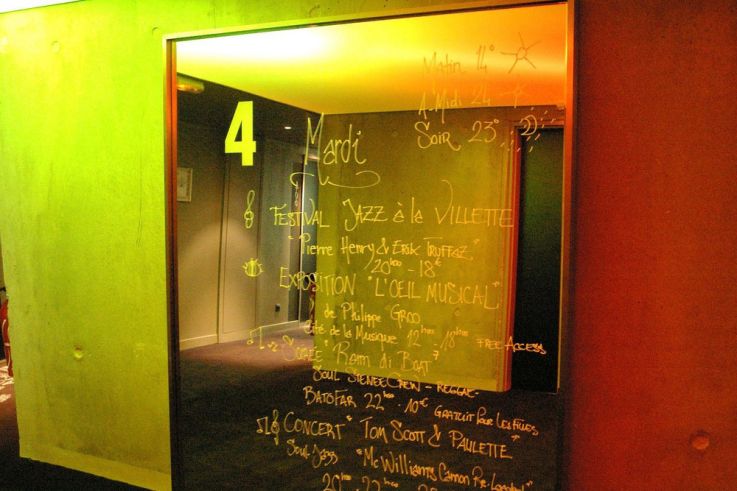 Matin 14°
A-Midi 24
Soir 23°
4
Mardi
FESTIVAL JAZZ à la VILLETTE
"Pierre Henry & Erik TRUFFAZ"
20h00 - 18€
EXPOSITION "L'OEIL MUSICAL"
de Philippe GROO
Cité de la Musique 12h00 - 18h00 FREE ACCESS
SOIRÉE "Ram di Boat"
SOUL STEREO - REGGAE-
BATOFAR 22h00 - 10€ GRATUIT POUR LES FILLES
CONCERT "TOM SCOTT & PAULETTE
Soul Jazz "Mc WILLIAMS"
20h00 - 22h00